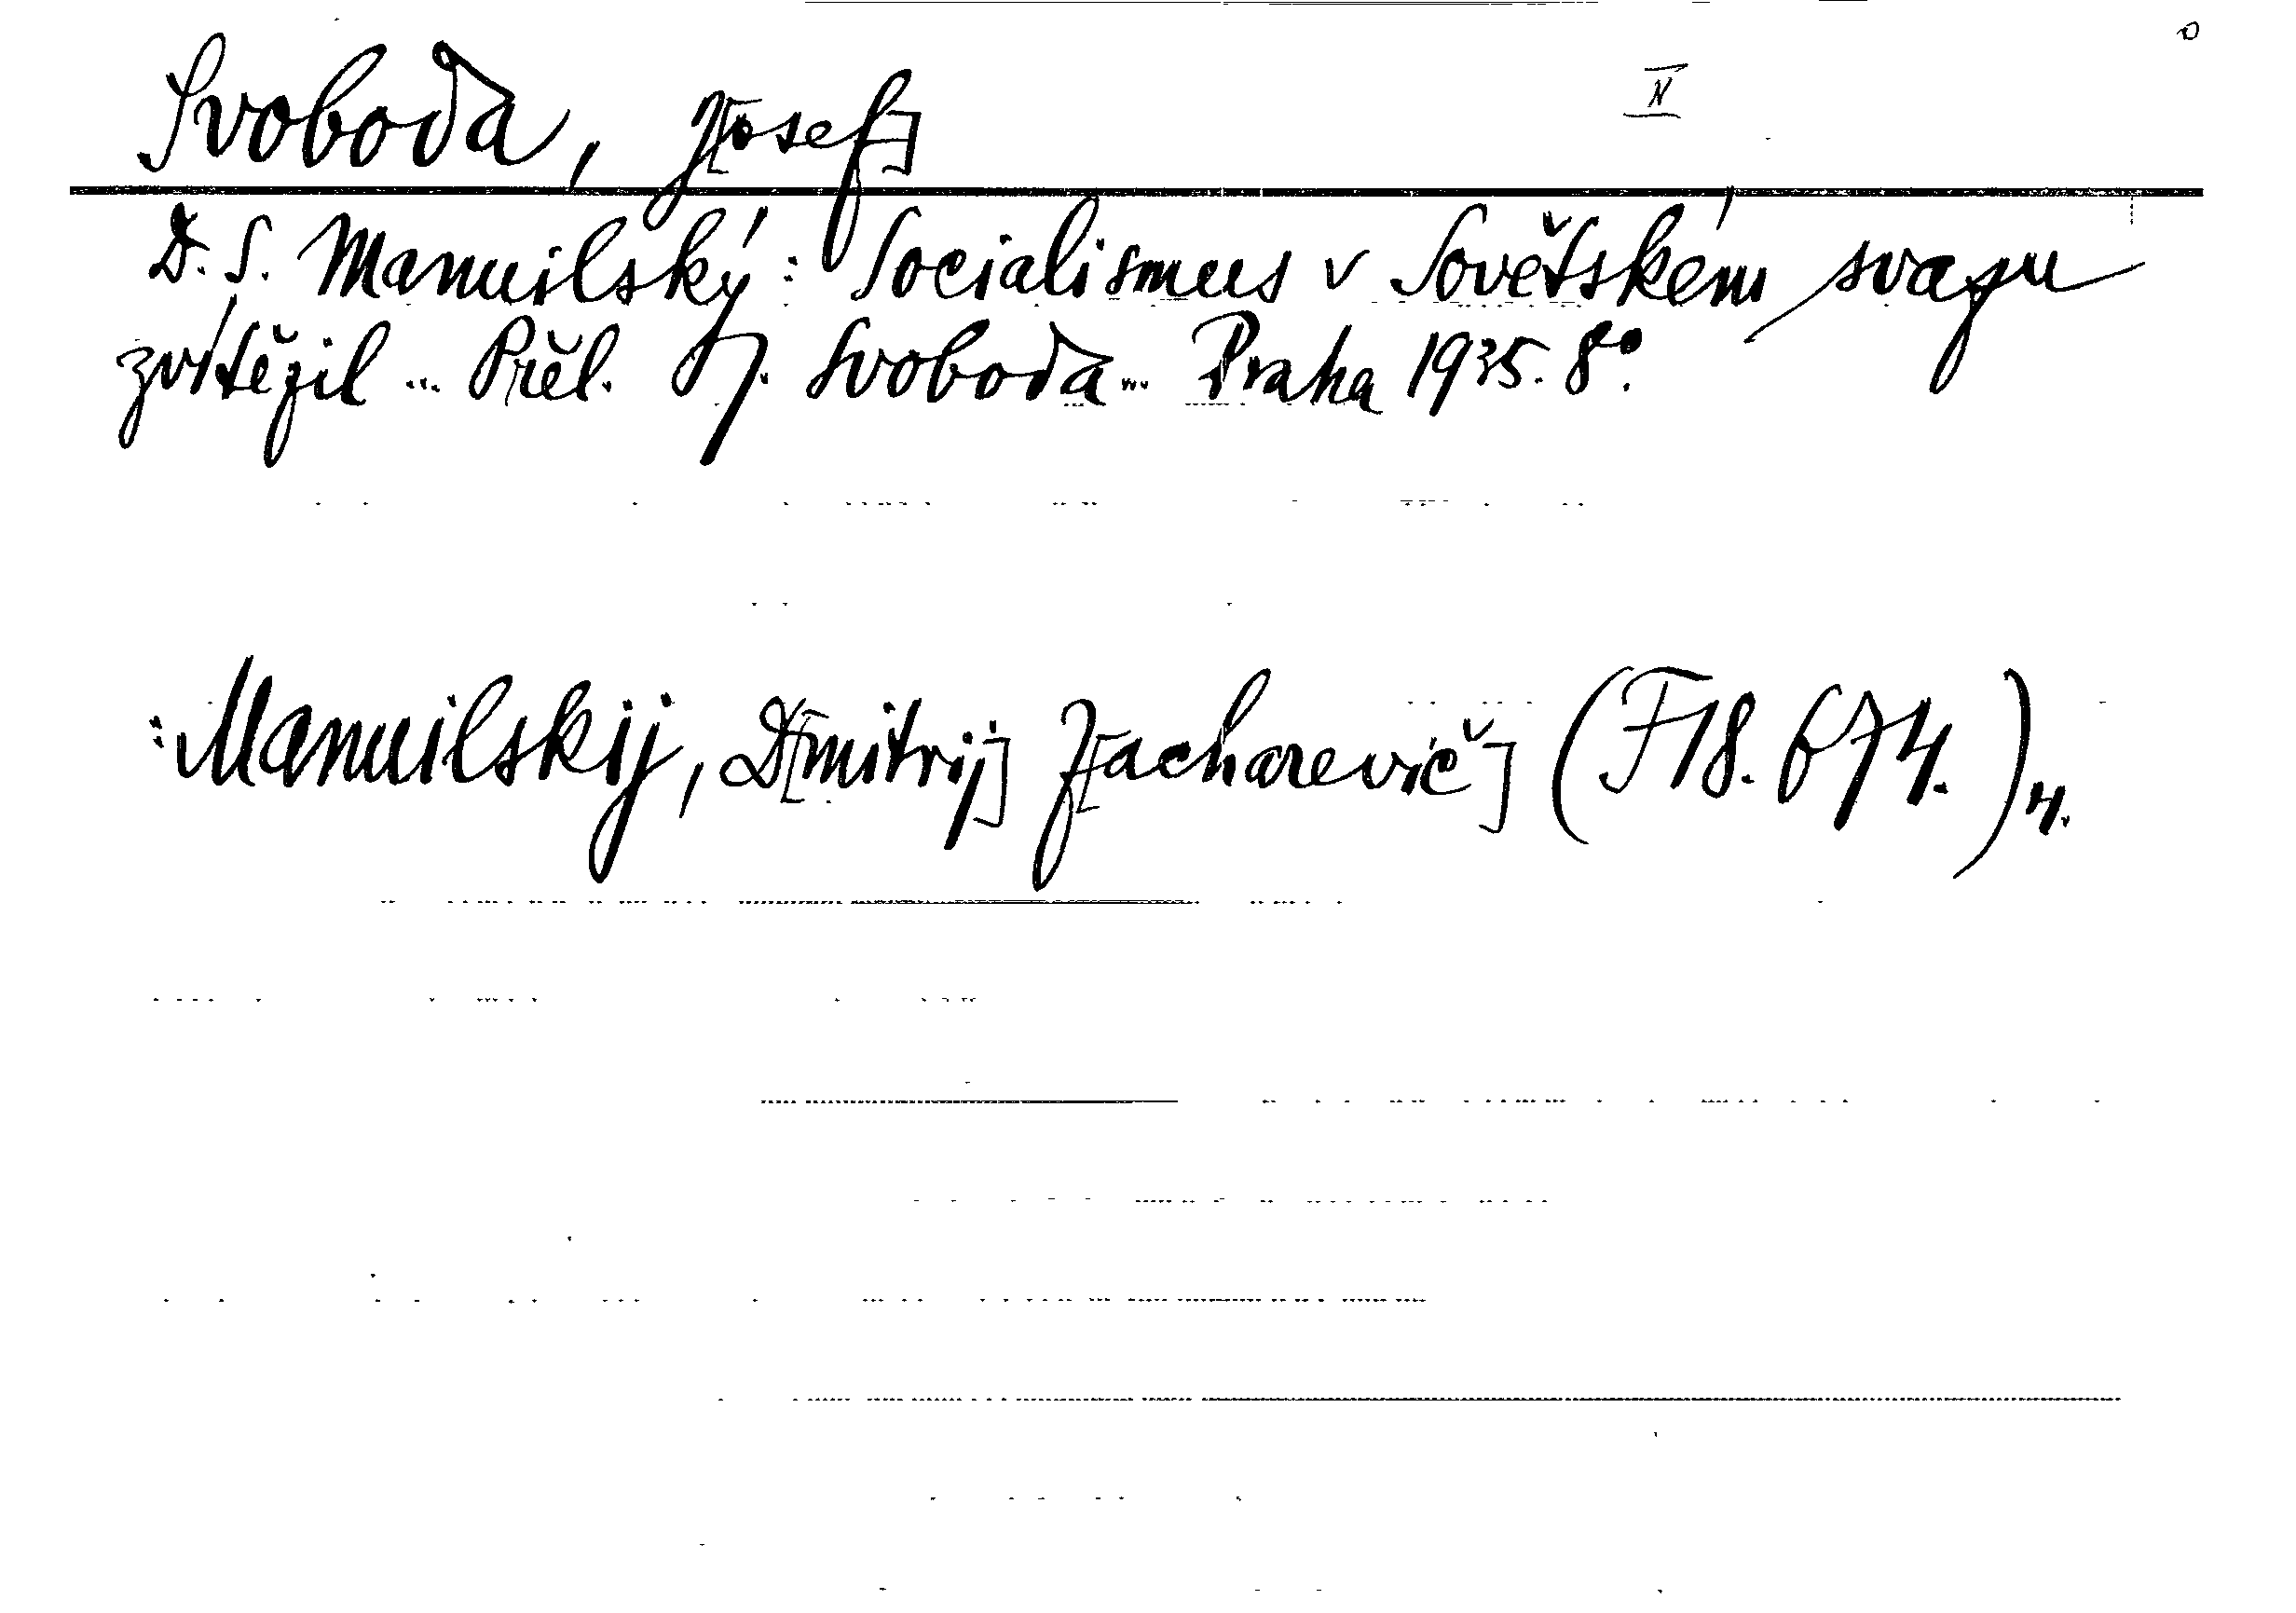 Svoboda, J[osef] IV
D. S. Manuilský: Socialismus v Sovětském svazu
zvítězil ... Přel. J. Svoboda ... Praha 1935. 8°.
: Manuilskij, D[mitrij] Z[acharevič] (F 18.674.) 4.